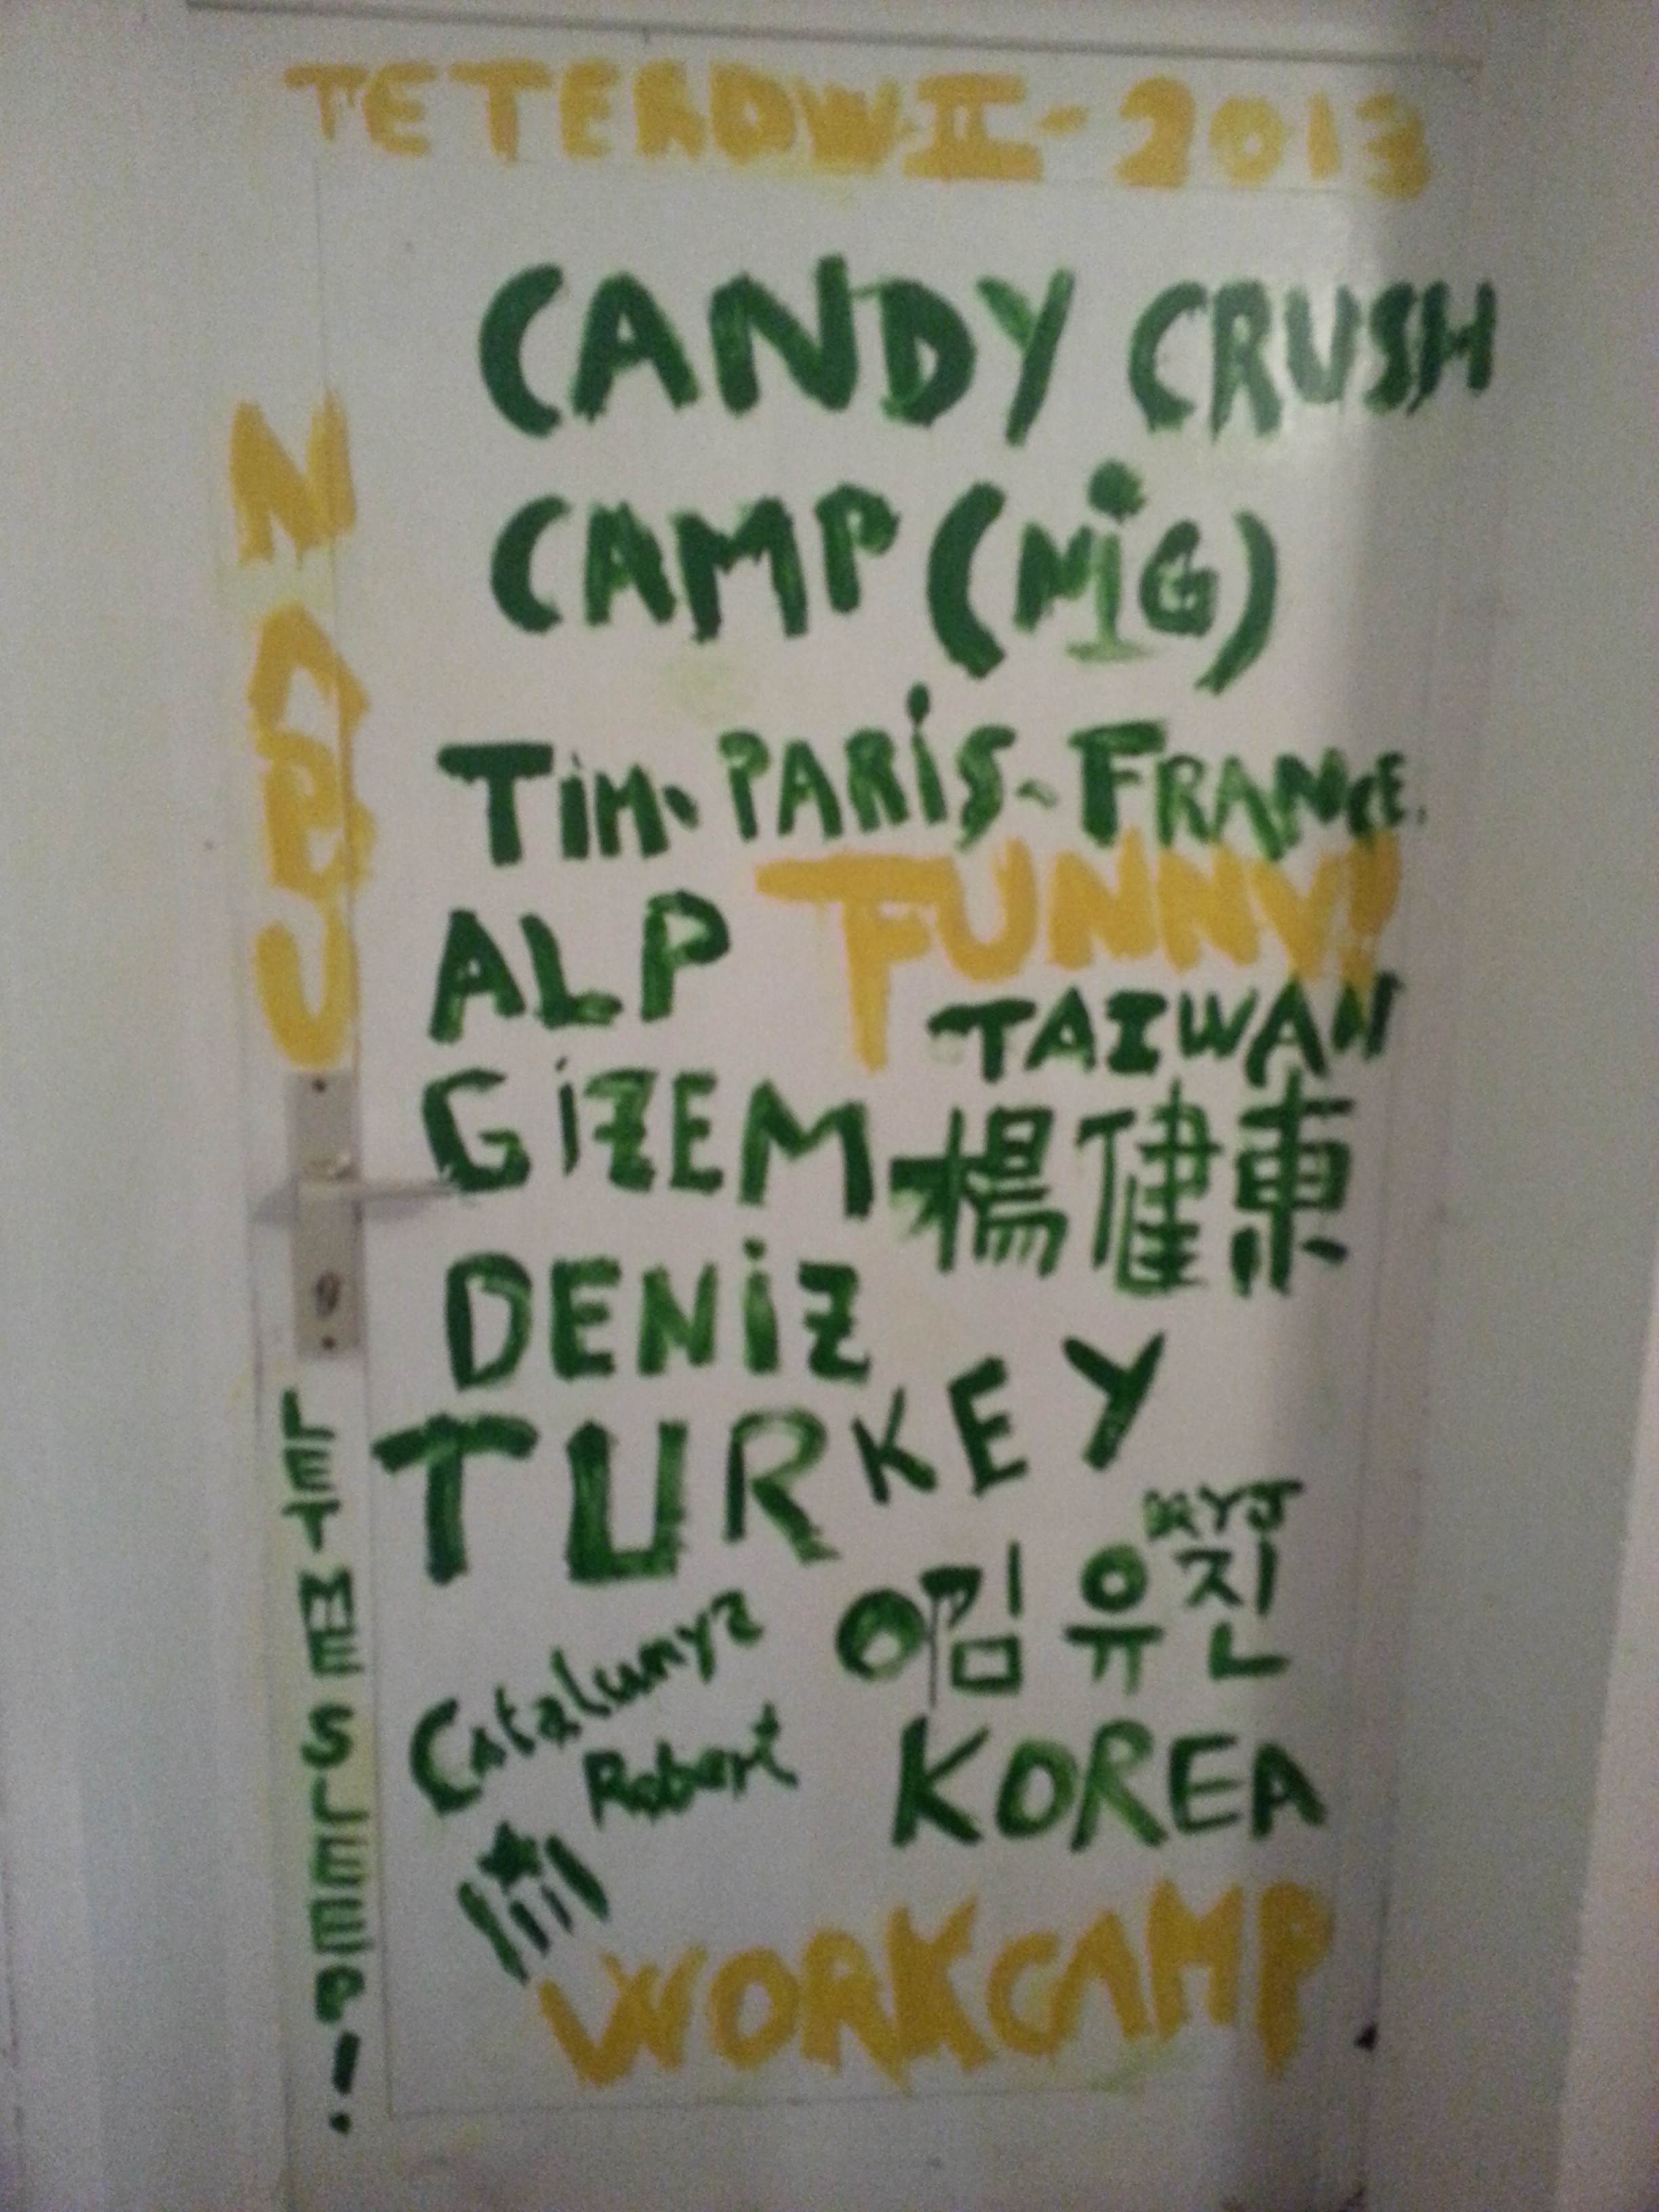 TETEROW II - 2013
CANDY CRUSH
CAMP (NiG)
TiM. PARiS - FRANCE.
FUNNY!
ALP
TAIWAN
GiZEM
楊健東
DENiZ
TURKEY
김유진
Catalunya
Robert
KOREA
WORKCAMP
LET ME SLEEP!